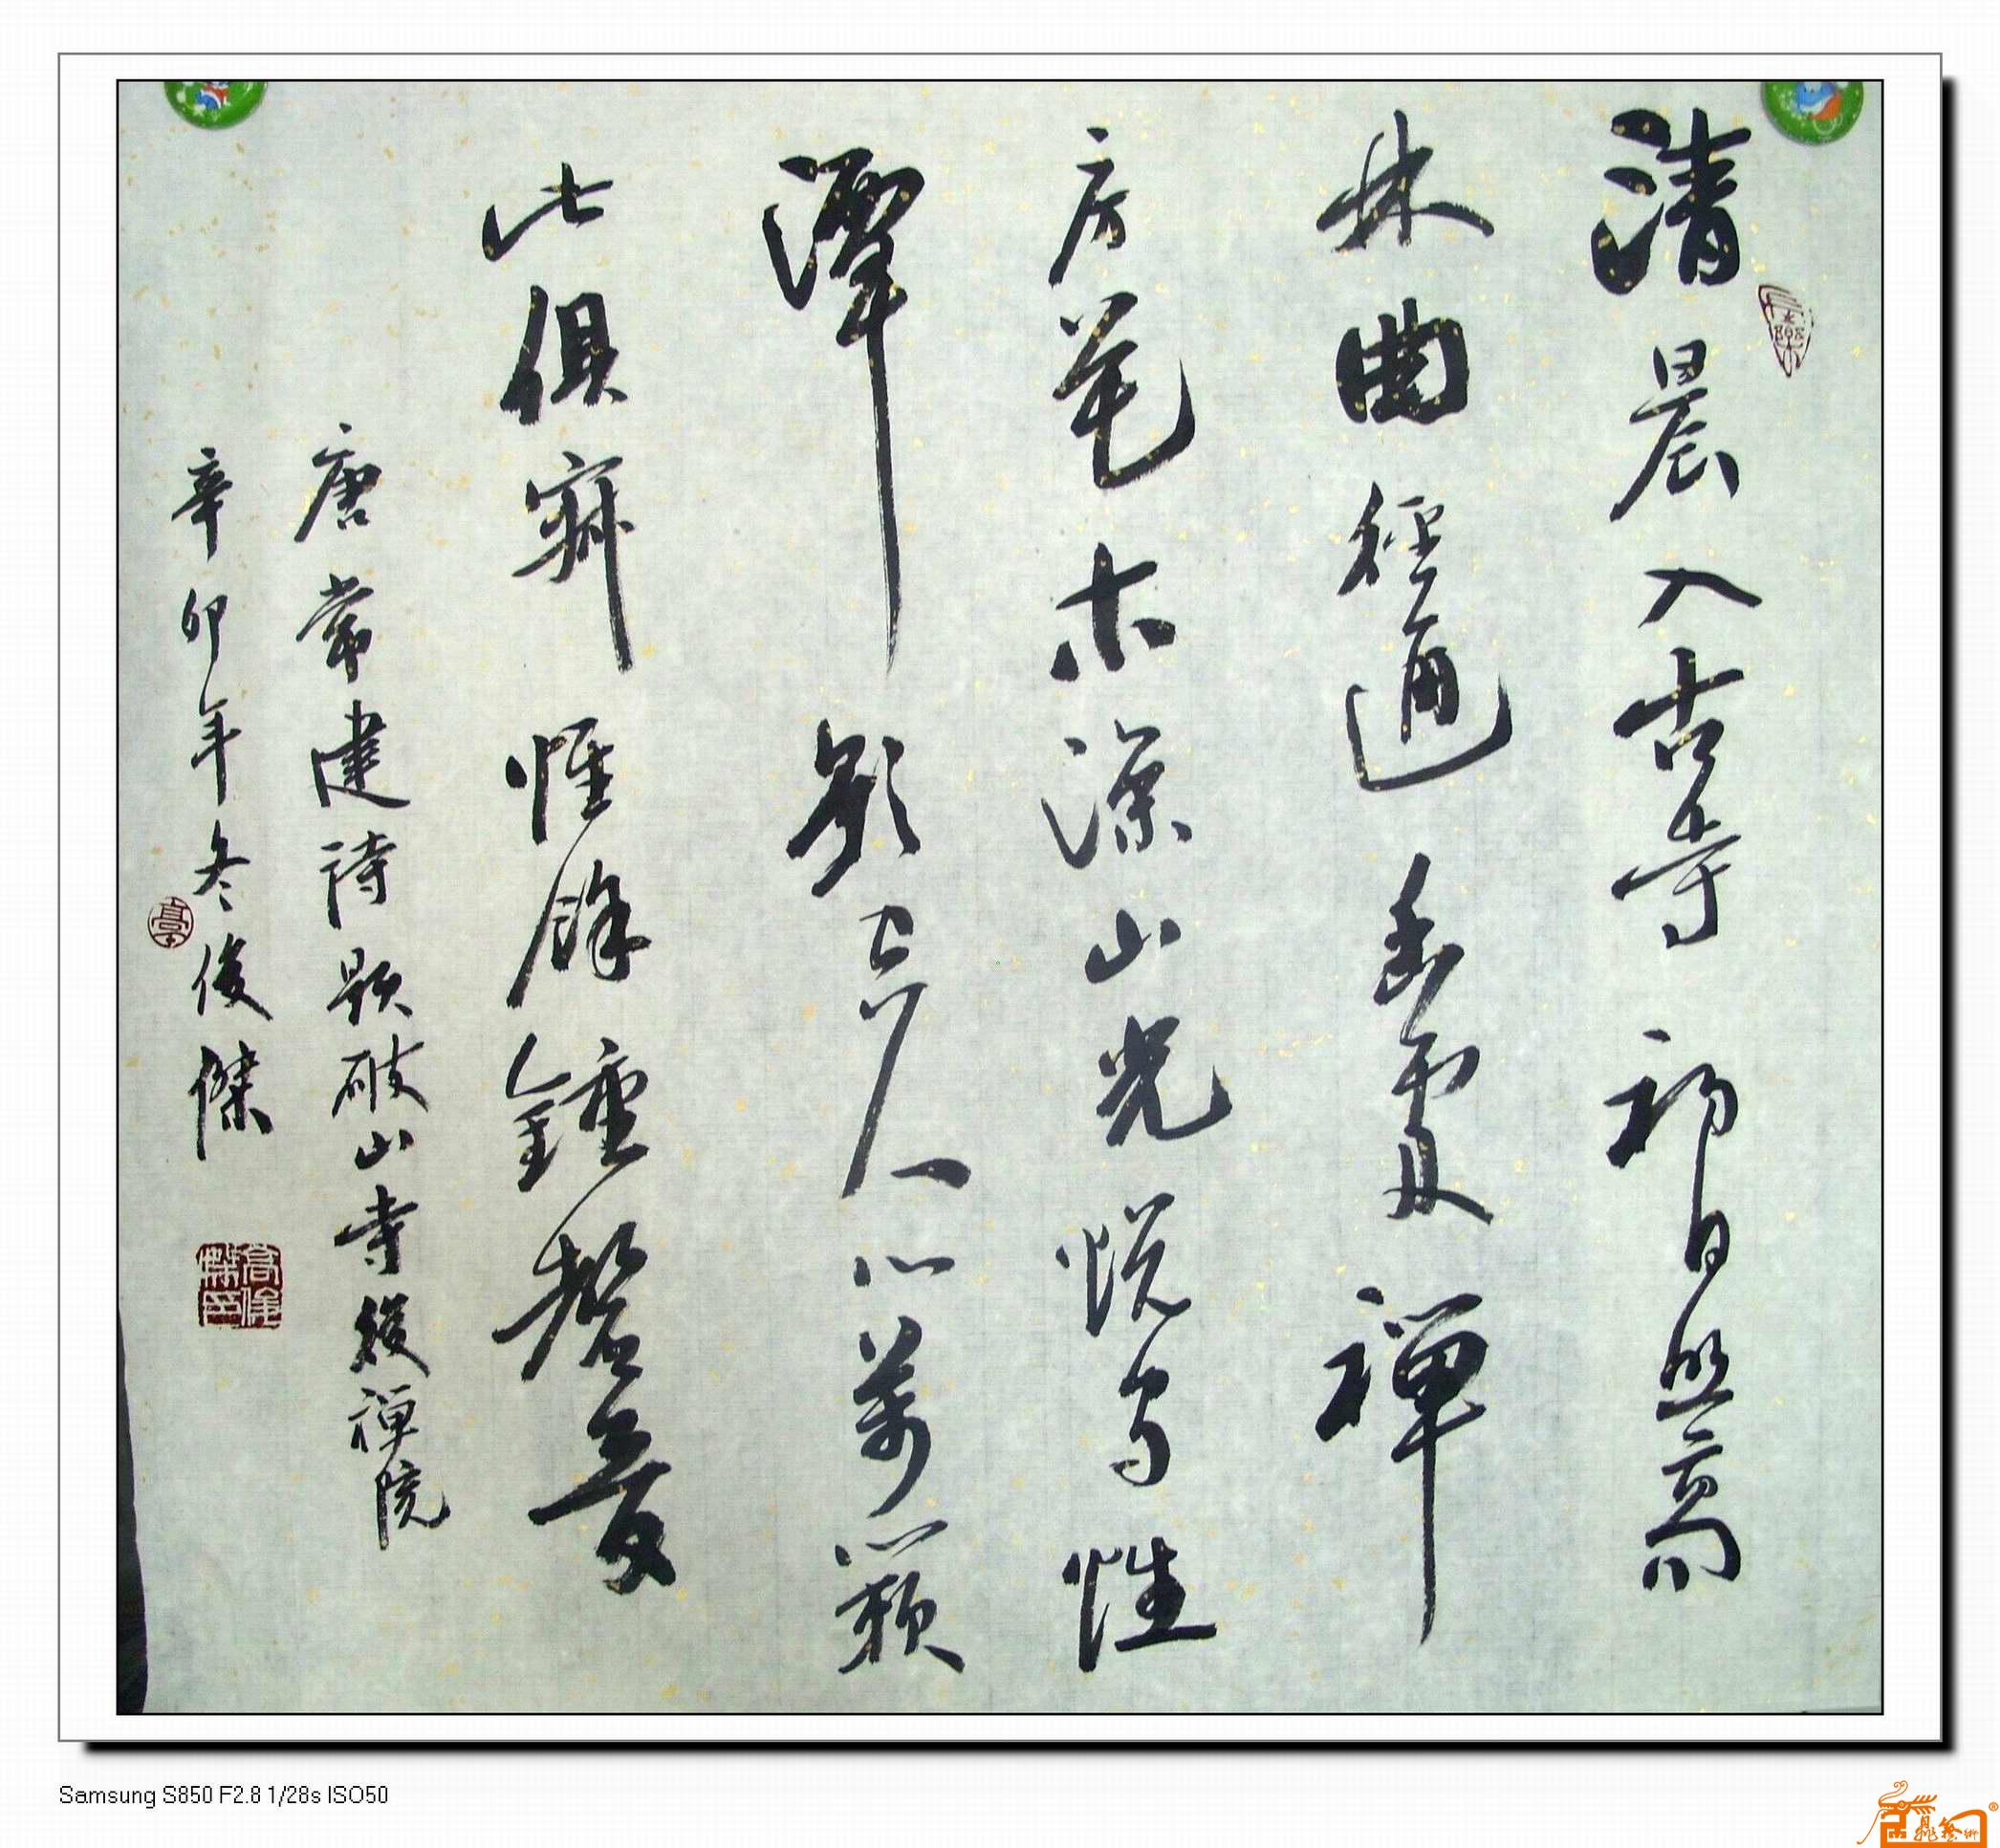 清晨入古寺初日照高
林曲徑通幽處禪
房花木深山光悦鳥性
潭影空人心萬籟
此俱寂惟餘鍾磬音
唐常建詩題破山寺後禪院
辛卯年冬俊傑
高俊傑印
Samsung S850 F2.8 1/28s ISO50